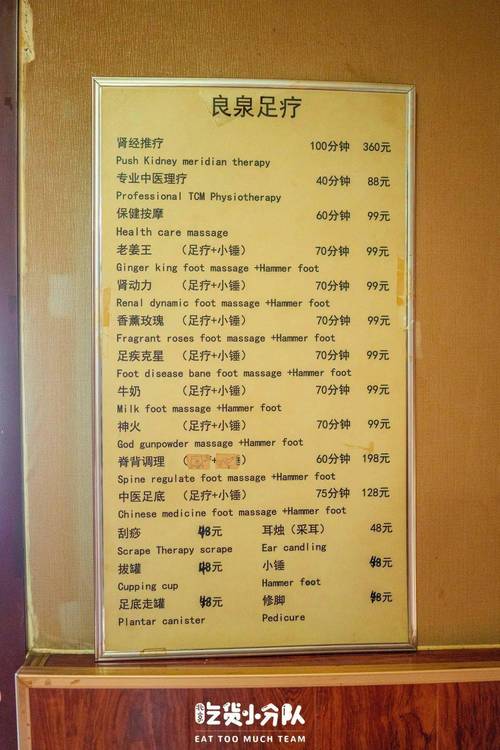 良泉足疗
肾经推疗 100分钟 360元
Push Kidney meridian therapy
专业中医理疗 40分钟 88元
Professional TCM Physiotherapy
保健按摩 60分钟 99元
Health care massage
老姜王 (足疗+小锤) 70分钟 99元
Ginger king foot massage +Hammer foot
肾动力 (足疗+小锤) 70分钟 99元
Renal dynamic foot massage +Hammer foot
香薰玫瑰 (足疗+小锤) 70分钟 99元
Fragrant roses foot massage +Hammer foot
足疾克星 (足疗+小锤) 70分钟 99元
Foot disease bane foot massage +Hammer foot
牛奶 (足疗+小锤) 70分钟 99元
Milk foot massage +Hammer foot
神火 (足疗+小锤) 70分钟 99元
God gunpowder massage +Hammer foot
脊背调理 60分钟 198元
Spine regulate foot massage +Hammer foot
中医足底 (足疗+小锤) 75分钟 128元
Chinese medicine foot massage +Hammer foot
刮痧 48元 耳烛（采耳） 48元
Scrape Therapy scrape Ear candling
拔罐 48元 小锤 48元
Cupping cup Hammer foot
足底走罐 48元 修脚 48元
Plantar canister Pedicure
吃货小分队
EAT TOO MUCH TEAM